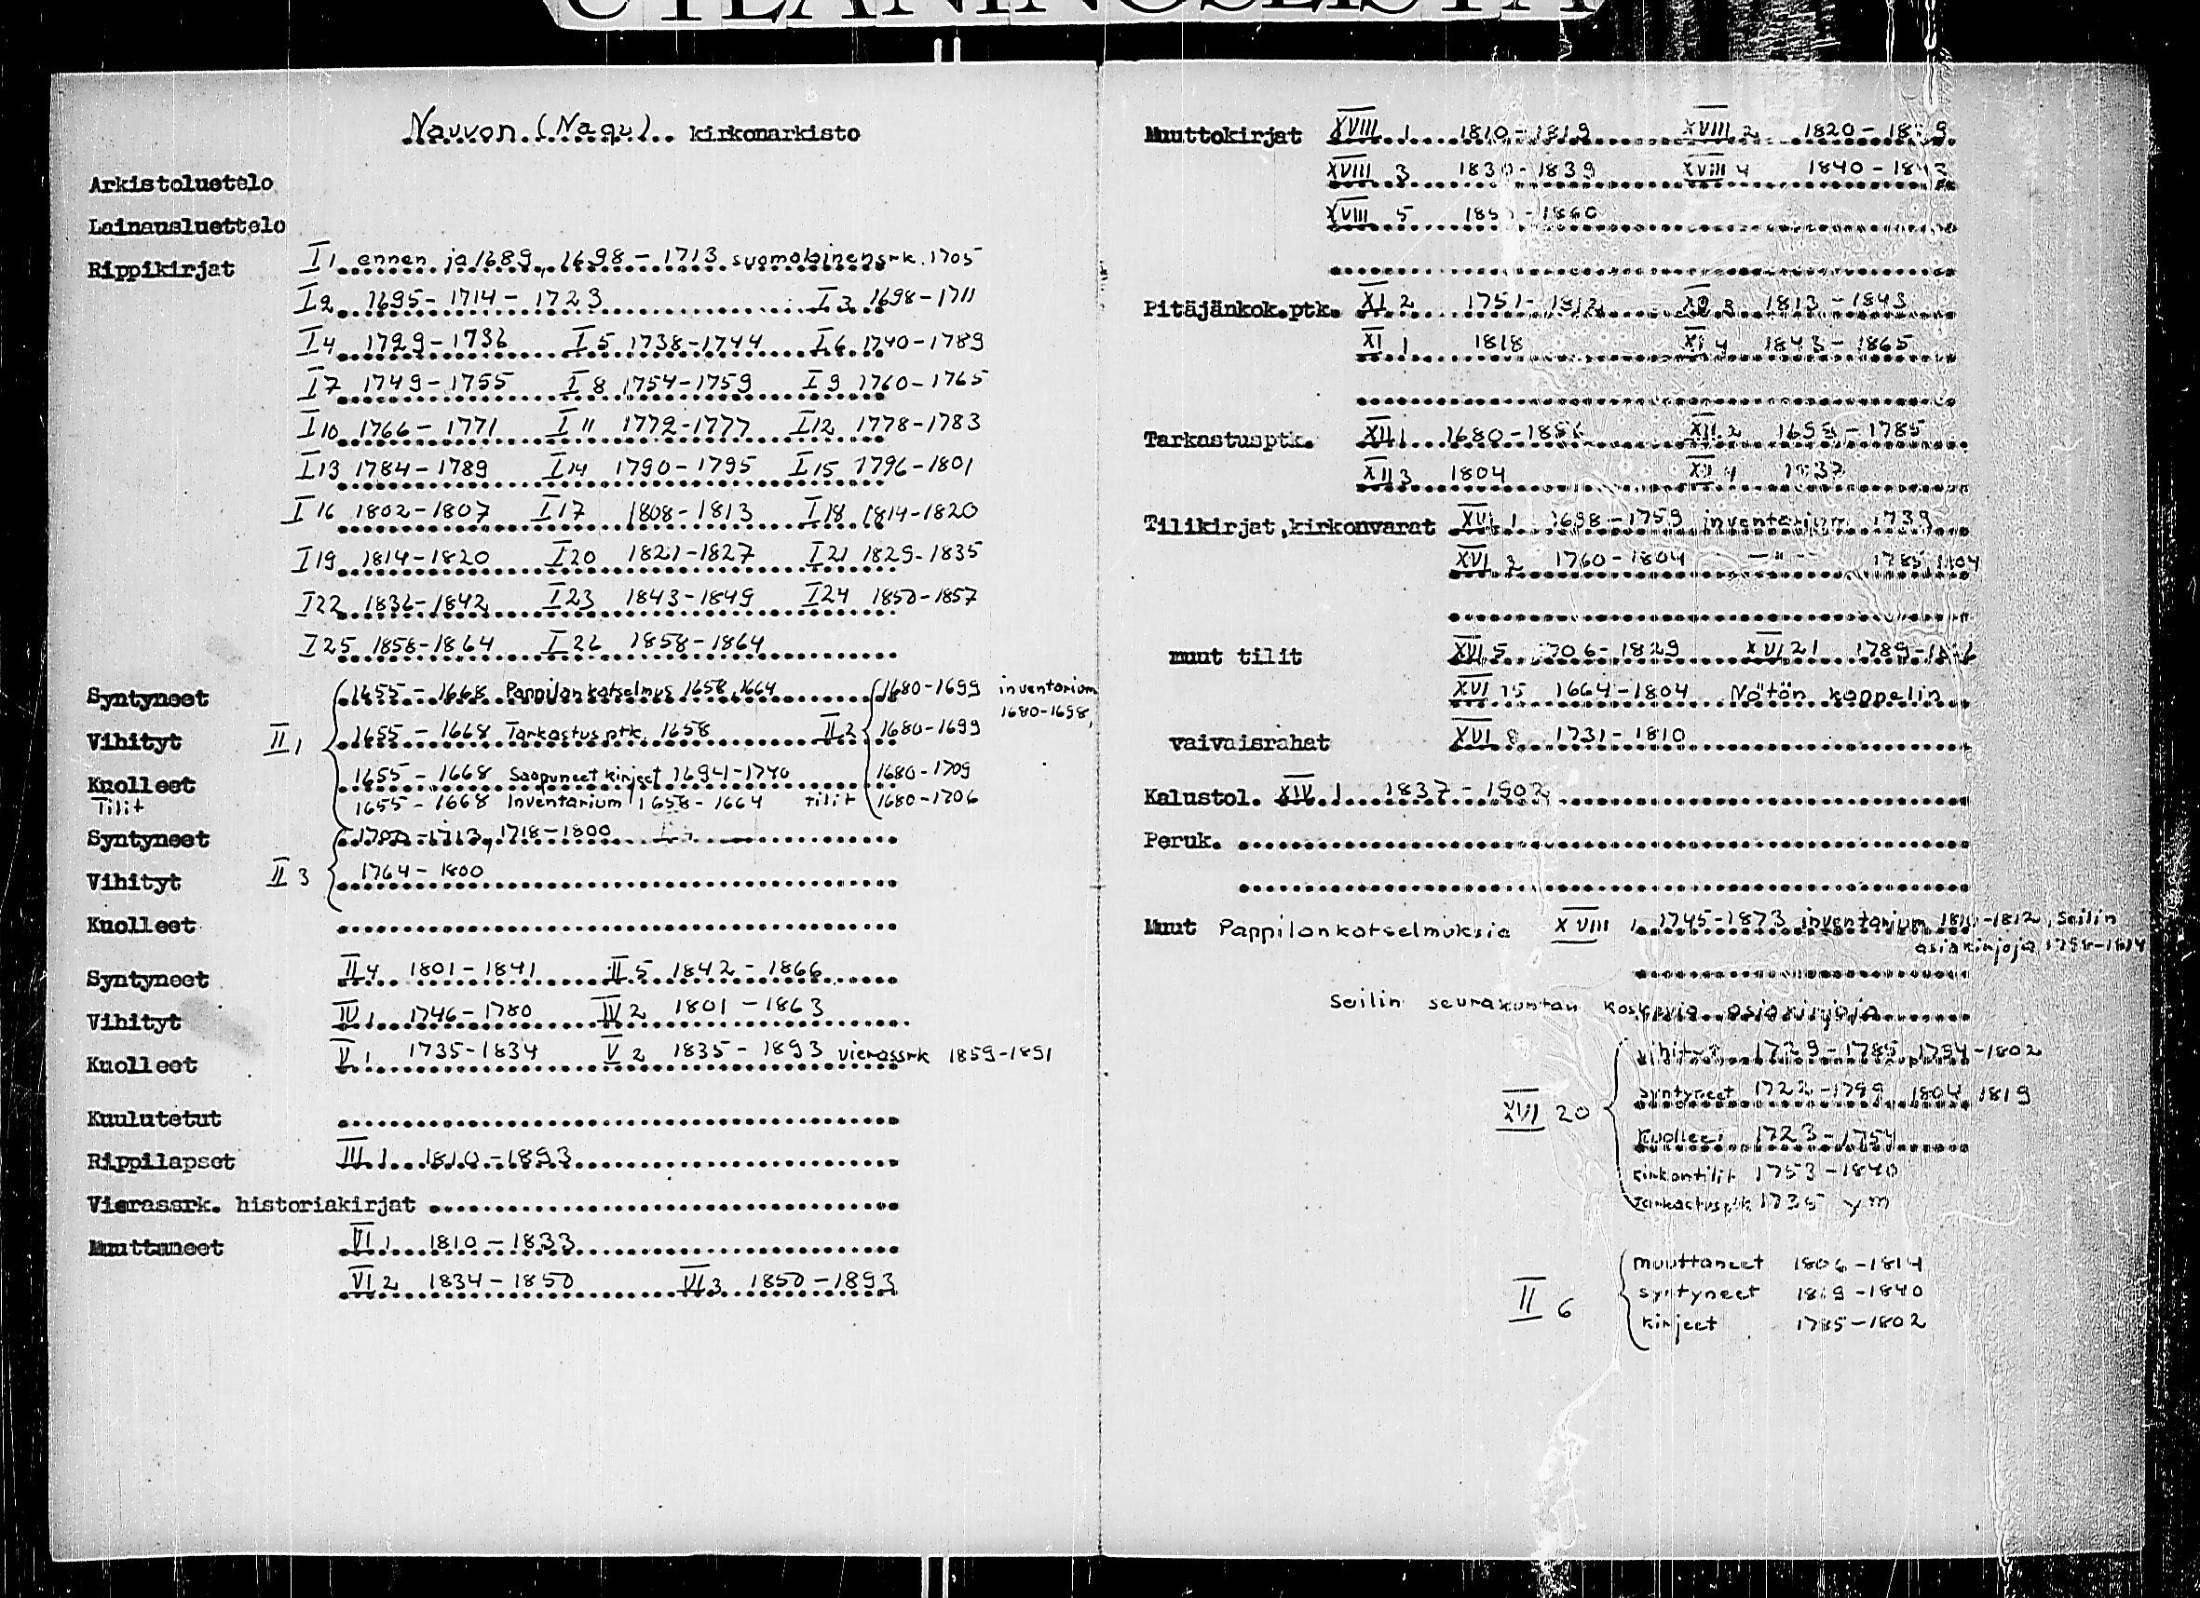 UTLÅNINGSLISTA
Nauvon (Nagu) kirkonarkisto
Arkistoluetelo
Lainausluettelo
Rippikirjat I 1 ennen ja 1689, 1698 - 1713 suomalainensrk. 1705
I 2 1695 - 1714 - 1723 I 3 1698-1711
I 4 1729-1736 I 5 1738-1744 I 6 1740-1789
I 7 1749-1755 I 8 1754-1759 I 9 1760-1765
I 10 1766-1771 I 11 1772-1777 I 12 1778-1783
I 13 1784-1789 I 14 1790-1795 I 15 1796-1801
I 16 1802-1807 I 17 1808-1813 I 18 1814-1820
I 19 1814-1820 I 20 1821-1827 I 21 1829-1835
I 22 1836-1842 I 23 1843-1849 I 24 1850-1857
I 25 1858-1864 I 26 1858-1864
Syntyneet 1655 - 1668 Pappilankatselmus 1658, 1664 1680-1699 inventarium
1680-1698,
Vihityt II 1 1655 - 1668 Tarkastusptk. 1658 II 2 1680-1699
Kuolleet 1655 - 1668 Saapuneet kirjeet 1694-1740 1680-1709
Tilit 1655 - 1668 Inventarium 1658-1664 tilit 1680-1706
Syntyneet 1700-1713, 1718-1800
Vihityt II 3 1764-1800
Kuolleet
Syntyneet II 4 1801-1841 II 5 1842-1866
Vihityt IV 1 1746-1780 IV 2 1801-1863
Kuolleet V 1 1735-1834 V 2 1835-1893 vierassrk 1859-1891
Kuulutetut
Rippilapset III 1 1810-1893
Vierassrk. historiakirjat
Muuttaneet VI 1 1810-1833
VI 2 1834-1850 VI 3 1850-1893
Muuttokirjat XVIII 1 1810-1819 XVIII 2 1820-
XVIII 3 1830-1839 XVIII 4 1840-
XVIII 5 -1860
Pitäjänkok.ptk. XI 2 1751-1812 XI 3 1813-1843
XI 1 1818 XI 4 1843-1865
Tarkastusptk. XII 1 1680- XII 2 -1785
XII 3 1804 XII 4
Tilikirjat,kirkonvarat XVI 1 1698-1759 inventarium 1739
XVI 2 1760-1804 - " - 1785,
muut tilit XVI 5 1706-1829 XVI 21 1789-
XVI 15 1664-1804 Nötön kappelin
vaivaisrahat XVI 8 1731-1810
Kalustol. XIV 1 1837-1902
Peruk.
Muut Pappilankatselmuksia XVIII 1 1745-1873 inventarium -1812, Seilin
asiakirjoja
Seilin seurakuntaa koskevia asiakirjoja
vihityt 1729-1785, 1794-1802
XVI 20 syntyneet 1722-1799, 1804, 1819
kuolleet 1723-1754
kirkontilit 1753-1840
tarkastusptk 1735 ym
muuttaneet 1806-1814
II 6 syntyneet 1819-1840
kirjeet 1785-1802